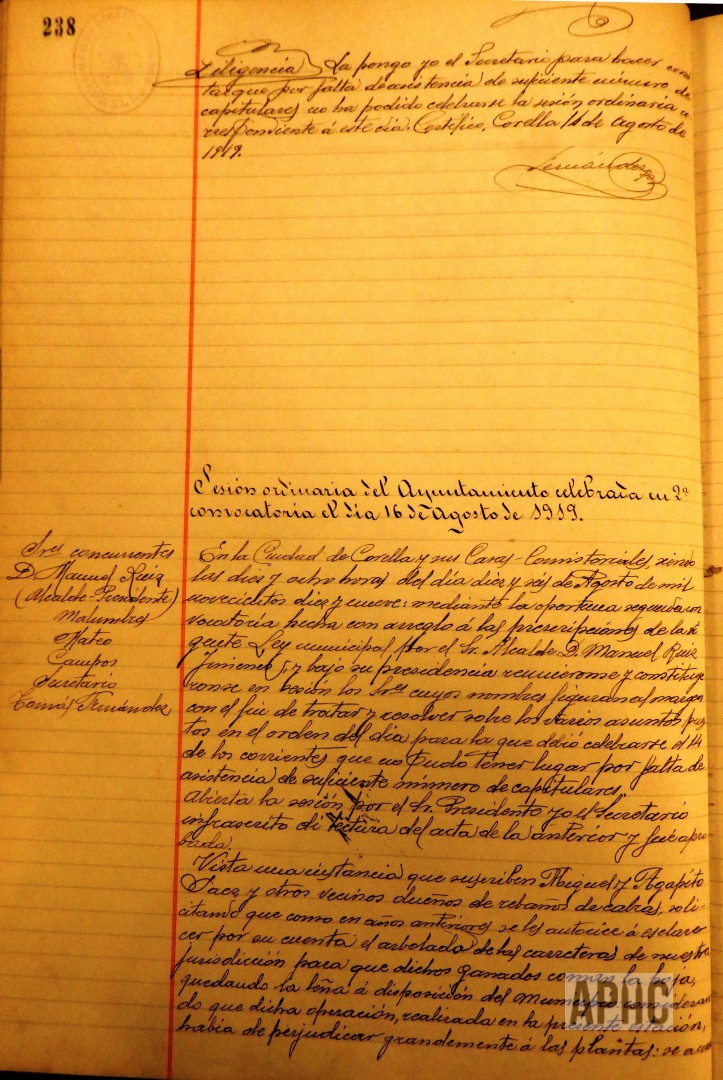 238
Diligencia La pongo yo el Secretario para hacer cons
tar que por falta de asistencia de suficiente número de
capitulares no ha podido celebrarse la sesión ordinaria co
rrespondiente á este día. Certifico, Corella 14 de Agosto de
1919.
Fernández
Sesión ordinaria del Ayuntamiento celebrada en 2ª
convocatoria el día 16 de Agosto de 1919.
Sres concurrentes
D. Manuel Ruiz
(Alcalde-Presidente)
Malumbres
Mateo
Campos
Secretario
Tomás Fernández
En la Ciudad de Corella y sus Casas-Consistoriales, siendo
las diez y ocho horas del día diez y seis de Agosto de mil
novecientos diez y nueve: mediante la oportuna segunda con
vocatoria hecha con arreglo á las prescripciones de la vi
gente Ley municipal por el Sr. Alcalde D. Manuel Ruiz
Jimenez, y bajo su presidencia reunieronse y constituye
ronse en sesión los Sres cuyos nombres figuran al margen
con el fin de tratar y resolver sobre los varios asuntos pues
tos en el orden del día para la que debió celebrarse el 14
de los corrientes que no pudo tener lugar por falta de
asistencia de suficiente número de capitulares.
Abierta la sesión por el Sr. Presidente yo el Secretario
infrascrito di lectura del acta de la anterior y fué apro
bada.
Vista una instancia que suscriben Miguel y Agapito
Saez y otros vecinos dueños de rebaños de cabras, soli-
citando que como en años anteriores se les autorice á esclare
cer por su cuenta el arbolado de las carreteras de nuestra
jurisdicción para que dichos ganados coman la hoja,
quedando la leña á disposición del Municipio, consideran
do que dicha operación, realizada en la presente estación,
habia de perjudicar grandemente á las plantas: se a
APHC